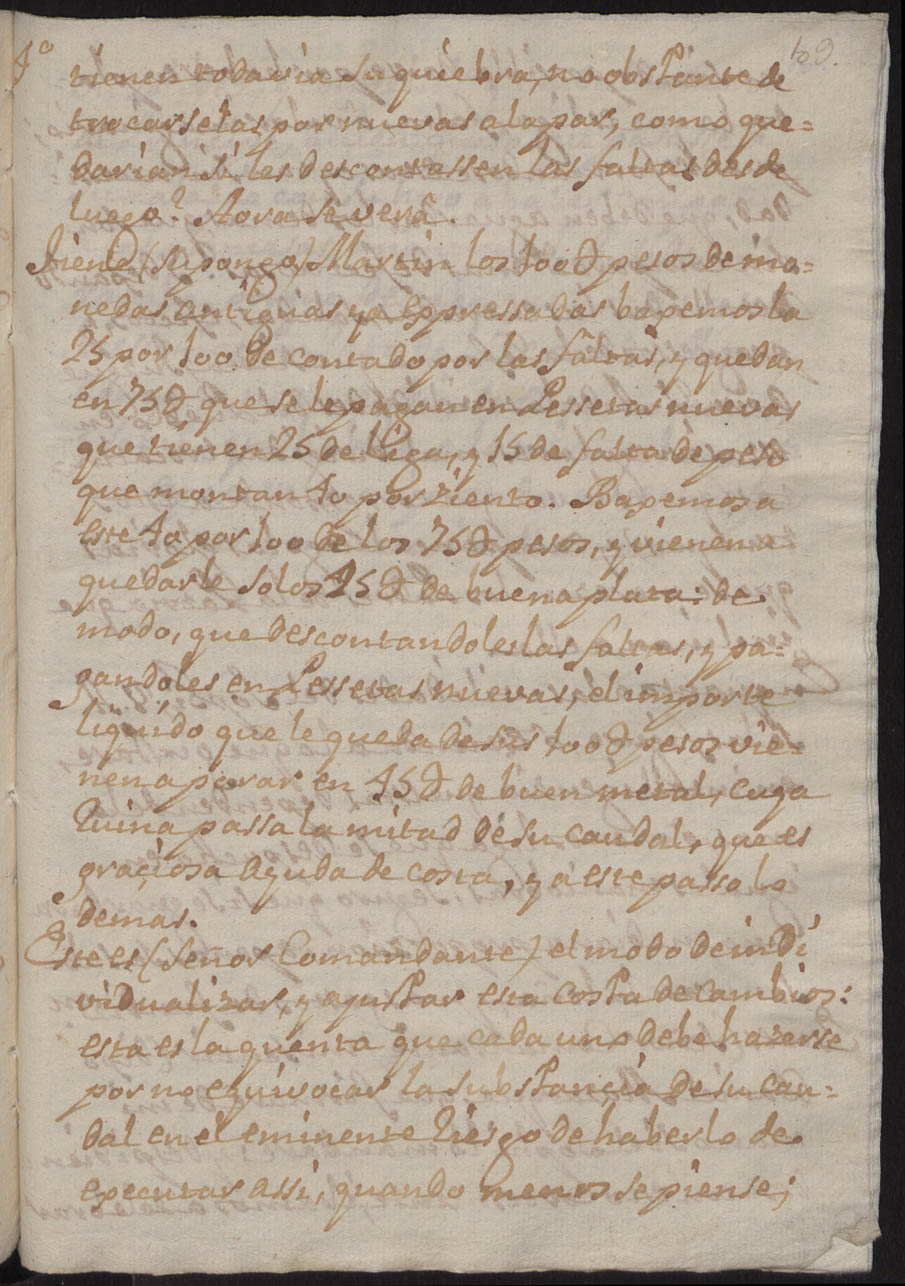 69.
tienen todavia su quiebra, no obstante de
trocarselas por nuevas a la par, como que=
darian si les descontassen las faltas desde
luego? Aora se verâ.
Tiene (supongo) Martin los 100 ∂ pesos de mo=
nedas antiguas ya Expressadas baxemosla
25 por 100 de contado por las fâltas, y quedan
en 75 ∂ que se le pagan en Pessetas nuevas
que tienen 25 de liga, y 15 de falta de peso
que montan 40 por ziento. Baxemos a
este 40 por 100 de los 75 ∂ pesos, y vienen a
quedarle solos 45 ∂ de buena plata: de
modo, que descontandoles las faltas, y pa=
gandoles en Pessetas nuevas, el importe
liquido que le queda de sus 100 ∂ pesos vie=
nen a parar en 45 ∂ de buen metal, cuya
Ruina passa la mitad de su caudal, que es
graçiosa ayuda de costa, y a este passo lo
demas.
Este es (Señor Comandante) el modo de indi
vidualizar, y ajustar esta costa de cambios:
esta es la quenta que cada uno debe hazerse
por no equivocar la substançia de su cau=
dal en el eminente Riesgo de haberlo de
executar assi, quando menos se piense;